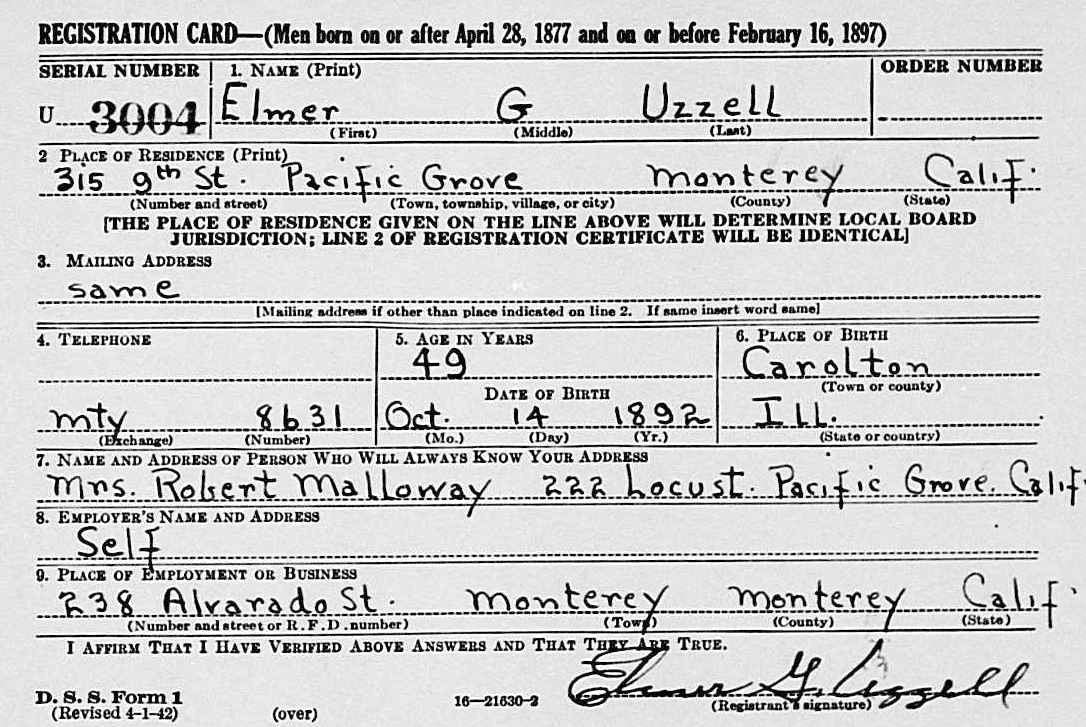 REGISTRATION CARD—(Men born on or after April 28, 1877 and on or before February 16, 1897)
SERIAL NUMBER 1. NAME (Print) ORDER NUMBER
U 3004 Elmer G Uzzell
(First) (Middle) (Last)
2 PLACE OF RESIDENCE (Print)
315 9th St. Pacific Grove Monterey Calif.
(Number and street) (Town, township, village, or city) (County) (State)
[THE PLACE OF RESIDENCE GIVEN ON THE LINE ABOVE WILL DETERMINE LOCAL BOARD
JURISDICTION; LINE 2 OF REGISTRATION CERTIFICATE WILL BE IDENTICAL]
3. MAILING ADDRESS
same
[Mailing address if other than place indicated on line 2. If same insert word same]
4. TELEPHONE 5. AGE IN YEARS 6. PLACE OF BIRTH
49 Carolton
DATE OF BIRTH (Town or county)
mty 8631 Oct. 14 1892 Ill.
(Exchange) (Number) (Mo.) (Day) (Yr.) (State or country)
7. NAME AND ADDRESS OF PERSON WHO WILL ALWAYS KNOW YOUR ADDRESS
Mrs. Robert Malloway 222 Locust. Pacific Grove. Calif
8. EMPLOYER'S NAME AND ADDRESS
Self
9. PLACE OF EMPLOYMENT OR BUSINESS
238 Alvarado St. Monterey Monterey Calif.
(Number and street or R.F.D. number) (Town) (County) (State)
I AFFIRM THAT I HAVE VERIFIED ABOVE ANSWERS AND THAT THEY ARE TRUE.
Elmer G. Uzzell
D. S. S. Form 1 16—21630-2 (Registrant's signature)
(Revised 4-1-42) (over)